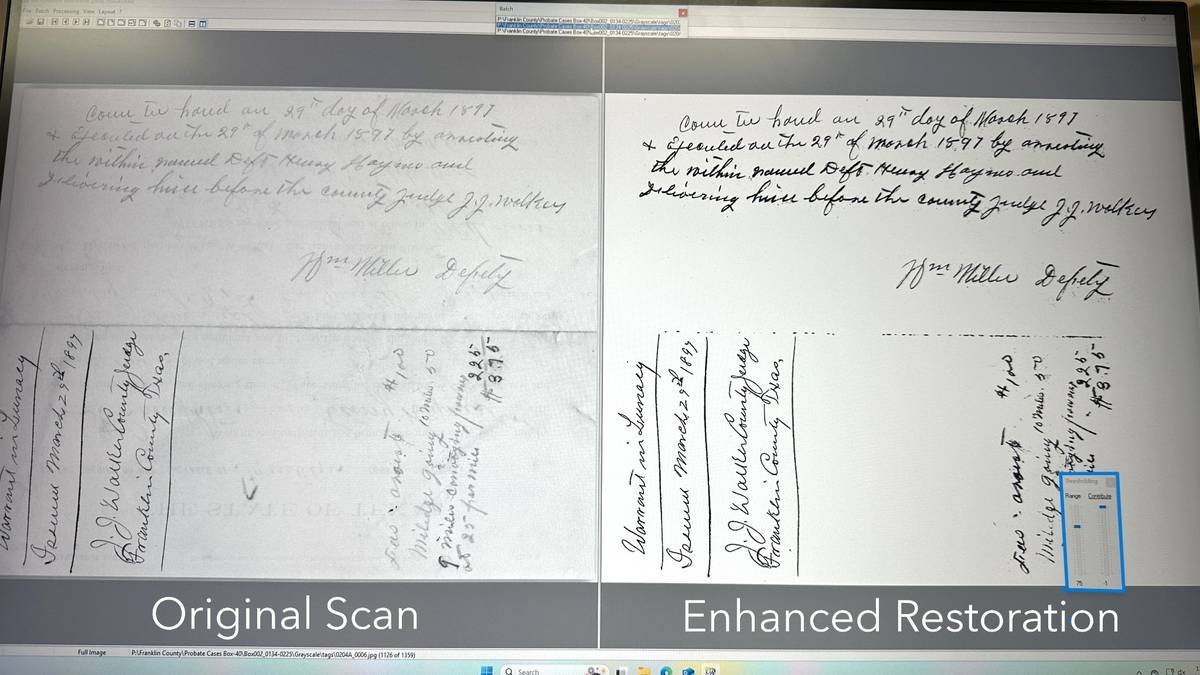 File Batch Processing View Layout ?
Batch
P:\Franklin County\Probate Cases Box-40\Box002_0134-0225\Grayscale\tags\020
P:\Franklin County\Probate Cases Box-40\Box002_0134-0225\Grayscale\tags\020
Come to hand on 29th day of March 1897
& Executed on the 29th of March 1897 by arresting
the within named Deft Henry Haymo and
Delivering him before the county Judge J.J. Walker
Wm Miller Depety
Warrant in Lunacy
Issued March 29th 1897
J.J. Walker County Judge
Franklin County Texas
Fees arrest # 1,00
Miledge going 10 miles 50
9 miles conveying
at 25 per mile 225
# 3.75
Come to hand on 29th day of March 1897
& Executed on the 29th of March 1897 by arresting
the within named Deft. Henry Haymo and
Delivering him before the county Judge J.J. Walker
Wm Miller Depety
Warrant in Lunacy
Issued March 29th 1897
J.J. Walker County Judge
Franklin County Texas
Fees arrest # 1,00
Miledge going 10 miles 50
225
# 3.75
Thresholding
Range Contribute
75 -1
Original Scan
Enhanced Restoration
Full Image P:\Franklin County\Probate Cases Box-40\Box002_0134-0225\Grayscale\tags\0204A_0006.jpg (1126 of 1359)
Search